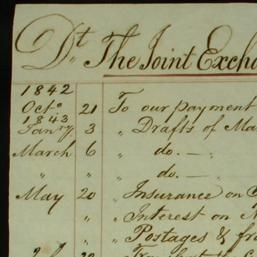 Dr The Joint Exch
1842
Octo 21 To our payment
1843
Jany 3 " Drafts of Ma
March 6 " do. —
" " " do. —
May 20 " Insurance on
" " Interest on
" " Postages & fr